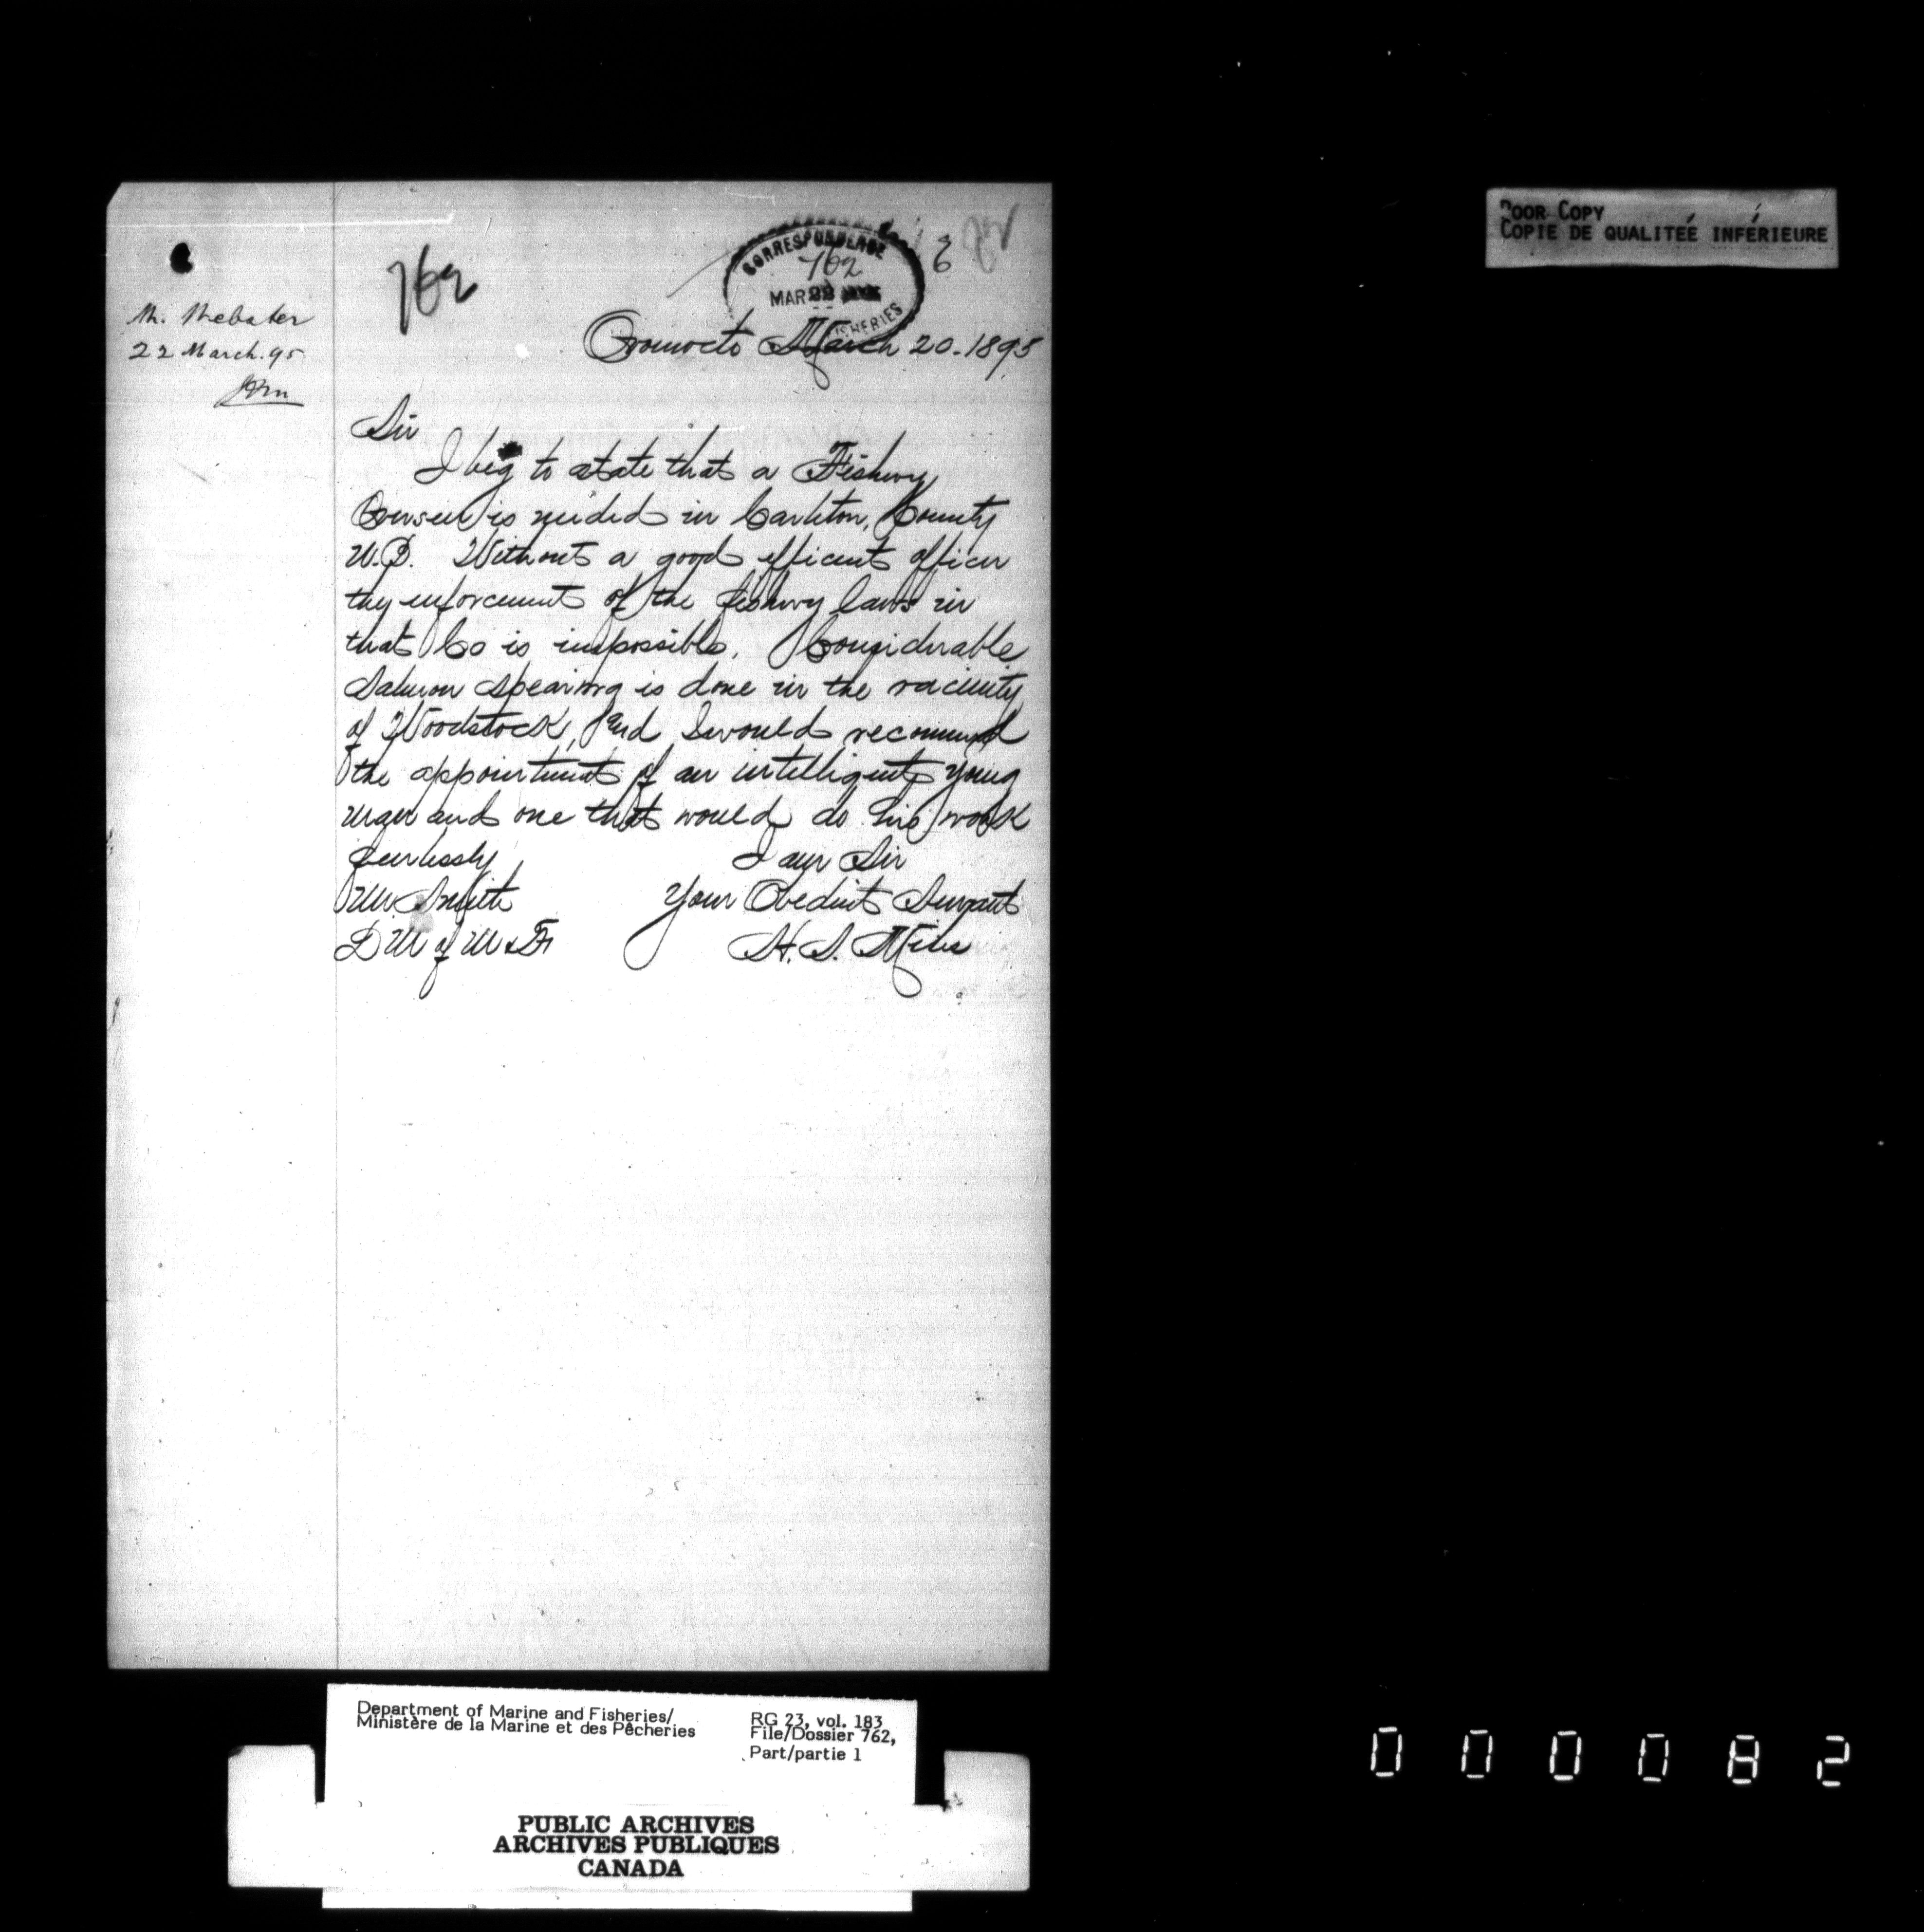 POOR COPY
COPIE DE QUALITEÉ INFÉRIEURE
762
CORRESPONDENCE
762
MAR 22
FISHERIES
M. Webster
22 March. 95
Oromocto March 20-1895
Sir
I beg to state that a Fishery
Overseer is needed in Carleton, County
N.B. Without a good efficient officer
they enforcement of the fishery laws in
that Co is impossible. Considerable
Salmon Spearing is done in the vacinity
of Woodstock, and I would recommend
the appointment of an intelligent young
man and one that would do his work
fearlessly
I am Sir
Mr Smith
Your Obedient Servant
D M of M & F
H. S. Miles
Department of Marine and Fisheries/
Ministère de la Marine et des Pêcheries
RG 23, vol. 183
File/Dossier 762,
Part/partie 1
PUBLIC ARCHIVES
ARCHIVES PUBLIQUES
CANADA
000082